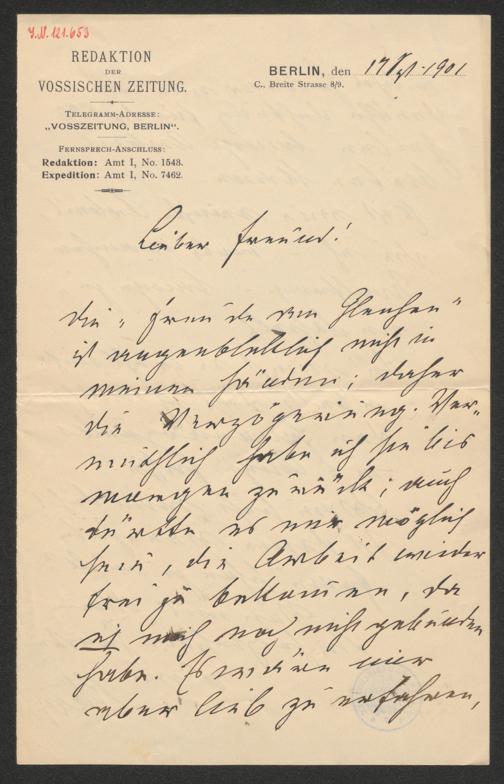 I.N. 121.653
REDAKTION
DER
VOSSISCHEN ZEITUNG.
TELEGRAMM-ADRESSE:
„VOSSZEITUNG, BERLIN“.
FERNSPRECH-ANSCHLUSS:
Redaktion: Amt I, No. 1543.
Expedition: Amt I, No. 7462.
BERLIN, den 1901
C., Breite Strasse 8/9.
Lieber Freund!
die „Freude am
ist augenblicklich nicht in
meinen Händen; daher
die Verzögerung. Ver-
muthlich habe ich sie bis
morgen zurück; auch
dürfte es mir möglich
sein, die Arbeit wieder
frei zu bekommen, da
ich mich noch nicht gebunden
habe. Es wäre mir
aber lieb zu erfahren,